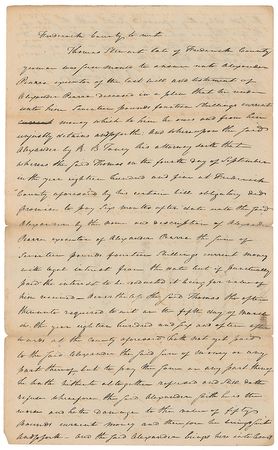 Frederick County to wit
Thomas Stewart late of Frederick County
yeoman was summoned to answer unto Alexander
Pearre executor of the last will and testament of
Alexander Pearre deceased in a plea that he render
unto him Seventeen pounds fourteen Shillings current
money which to him he owes and from him
unjustly detains and so forth. And whereupon the said
Alexander by R B Taney his attorney saith that
whereas the said Thomas on the fourth day of September
in the year eighteen hundred and five at Frederick
County aforesaid by his certain bill obligatory did
promise to pay Six months after date unto the said
Alexander by the name and description of Alexander
Pearre executor of Alexander Pearre the sum of
Seventeen pounds fourteen Shillings current money
with legal interest from the date but if punctually
paid the interest to be deducted it being for value of
him received. Nevertheless the said Thomas tho often
thereunto required to wit on the fifth day of March
in the year eighteen hundred and six and often after-
wards at the county aforesaid hath not yet paid
to the said Alexander the said sum of money or any
part thereof, but to pay the same or any part thereof
he hath hitherto altogether refused and still doth
refuse wherefore the said Alexander saith he is the
worse and hath damage to the value of fifty
pounds current money and therefore he brings suit
and so forth. And the said Alexander brings here into Court